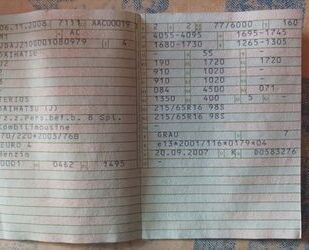 06.11.2008 7111 AAC00019
- AC
JDAJ210G001080979 4
DAIHATSU
-
-
-
TERIOS
DAIHATSU (J)
Fz.z.Pers.bef.b. 8 Spl.
Kombilimousine
70/220*2003/76B
EURO 4
Benzin
0001 0462 1495
2 2 77/6000 160
4055-4095 1695-1745
1680-1730 1265-1305
- 55 -
190 1720 1720
910 1020 -
910 1020 -
084 4500 071
1350 400 5 -
215/65R16 98S
215/65R16 98S
-
GRAU 7
e13*2001/116*0179*04
20.09.2007 K D0583276
-